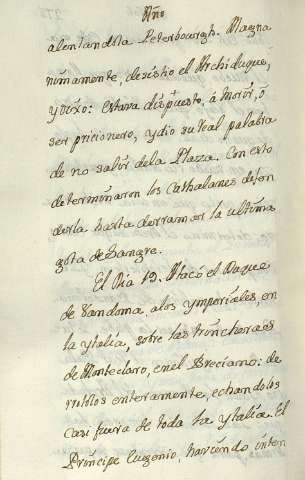 Año
alentandola Peterbourgh. Magna
nimamente, desistio el Archiduque,
y dixo: estava dispuesto, á Morir, ó
ser pricionero, y dio su real palabra
de no salir dela Plaza. Con esto
determinaron los Cathalanes defen
derla hasta derramar la ultima
gota de Sangre.
El Dia 19. Atacó el Duque
de Vandoma alos ymperiales, en
la ytalia, sobre las trincheraas
de Monteclaro, en el Breciano: de
rrotolos enteramente, echandolos
casi fuera de toda la ytalia. El
Principe Eugenio, haviendo inten